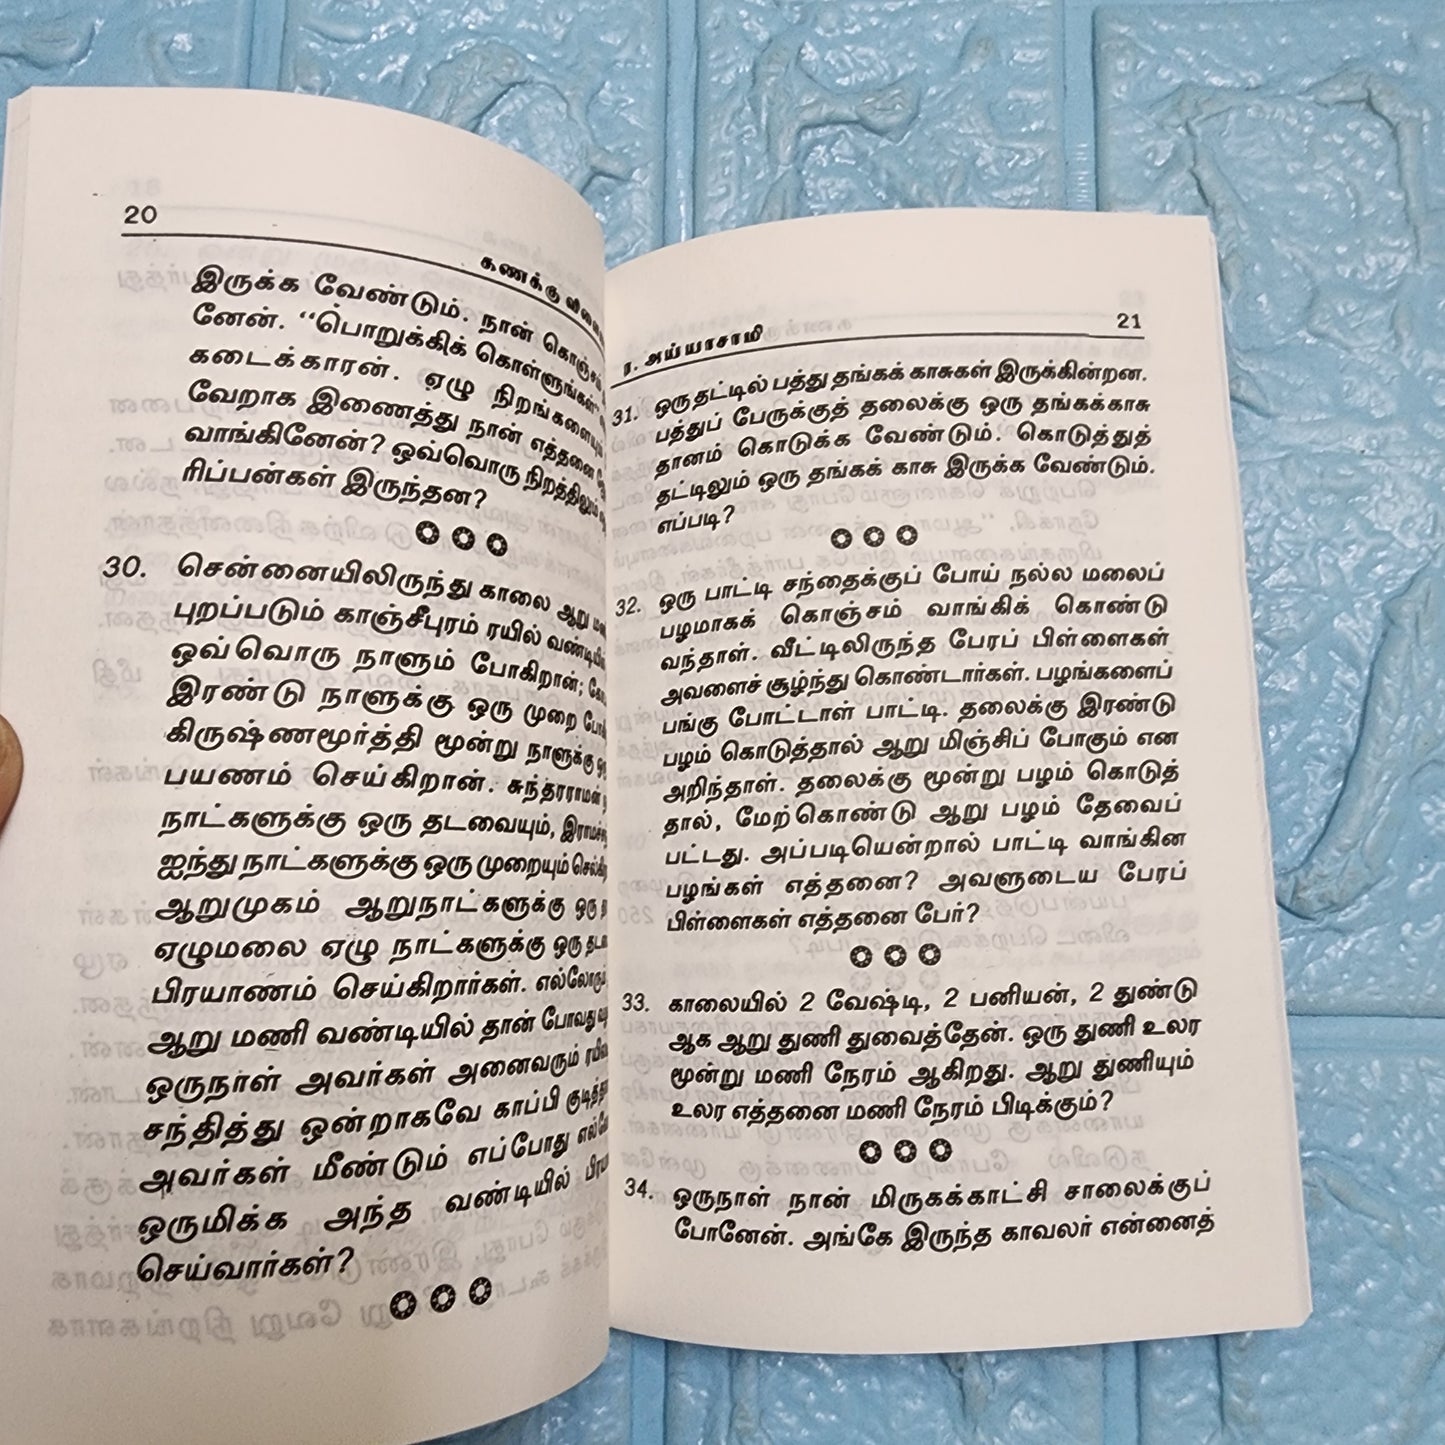 20
கணக்கு
இருக்க வேண்டும். நான் கொஞ்சம்
னேன். “பொறுக்கிக் கொள்ளுங்கள்”
கடைக்காரன். ஏழு நிறங்களையும்
வேறாக இணைத்து நான் எத்தனை
வாங்கினேன்? ஒவ்வொரு நிறத்திலும்
ரிப்பன்கள் இருந்தன?
30. சென்னையிலிருந்து காலை ஆறு
புறப்படும் காஞ்சீபுரம் ரயில்
ஒவ்வொரு நாளும் போகிறான்;
இரண்டு நாளுக்கு ஒரு முறை
கிருஷ்ணமூர்த்தி மூன்று நாளுக்கு
பயணம் செய்கிறான். சுந்தரராமன்
நாட்களுக்கு ஒரு தடவையும்,
ஐந்து நாட்களுக்கு ஒரு முறையும்
ஆறுமுகம் ஆறுநாட்களுக்கு ஒரு
ஏழுமலை ஏழு நாட்களுக்கு ஒரு
பிரயாணம் செய்கிறார்கள். எல்லோரும்
ஆறு மணி வண்டியில் தான் போவது
ஒருநாள் அவர்கள் அனைவரும்
சந்தித்து ஒன்றாகவே காப்பி
அவர்கள் மீண்டும் எப்போது
ஒருமிக்க அந்த வண்டியில்
செய்வார்கள்?
ர. அய்யாசாமி 21
31. ஒரு தட்டில் பத்து தங்கக் காசுகள் இருக்கின்றன.
பத்துப் பேருக்குத் தலைக்கு ஒரு தங்கக்காசு
தானம் கொடுக்க வேண்டும். கொடுத்துத்
தட்டிலும் ஒரு தங்கக் காசு இருக்க வேண்டும்.
எப்படி?
32. ஒரு பாட்டி சந்தைக்குப் போய் நல்ல மலைப்
பழமாகக் கொஞ்சம் வாங்கிக் கொண்டு
வந்தாள். வீட்டிலிருந்த பேரப் பிள்ளைகள்
அவளைச் சூழ்ந்து கொண்டார்கள். பழங்களைப்
பங்கு போட்டாள் பாட்டி. தலைக்கு இரண்டு
பழம் கொடுத்தால் ஆறு மிஞ்சிப் போகும் என
அறிந்தாள். தலைக்கு மூன்று பழம் கொடுத்
தால், மேற்கொண்டு ஆறு பழம் தேவைப்
பட்டது. அப்படியென்றால் பாட்டி வாங்கின
பழங்கள் எத்தனை? அவளுடைய பேரப்
பிள்ளைகள் எத்தனை பேர்?
33. காலையில் 2 வேஷ்டி, 2 பனியன், 2 துண்டு
ஆக ஆறு துணி துவைத்தேன். ஒரு துணி உலர
மூன்று மணி நேரம் ஆகிறது. ஆறு துணியும்
உலர எத்தனை மணி நேரம் பிடிக்கும்?
34. ஒருநாள் நான் மிருகக்காட்சி சாலைக்குப்
போனேன். அங்கே இருந்த காவலர் என்னைத்